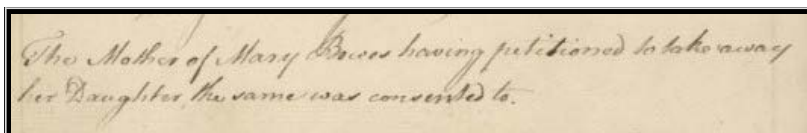 The Mother of Mary Bowes having petitioned to take away
her Daughter, the same was consented to.